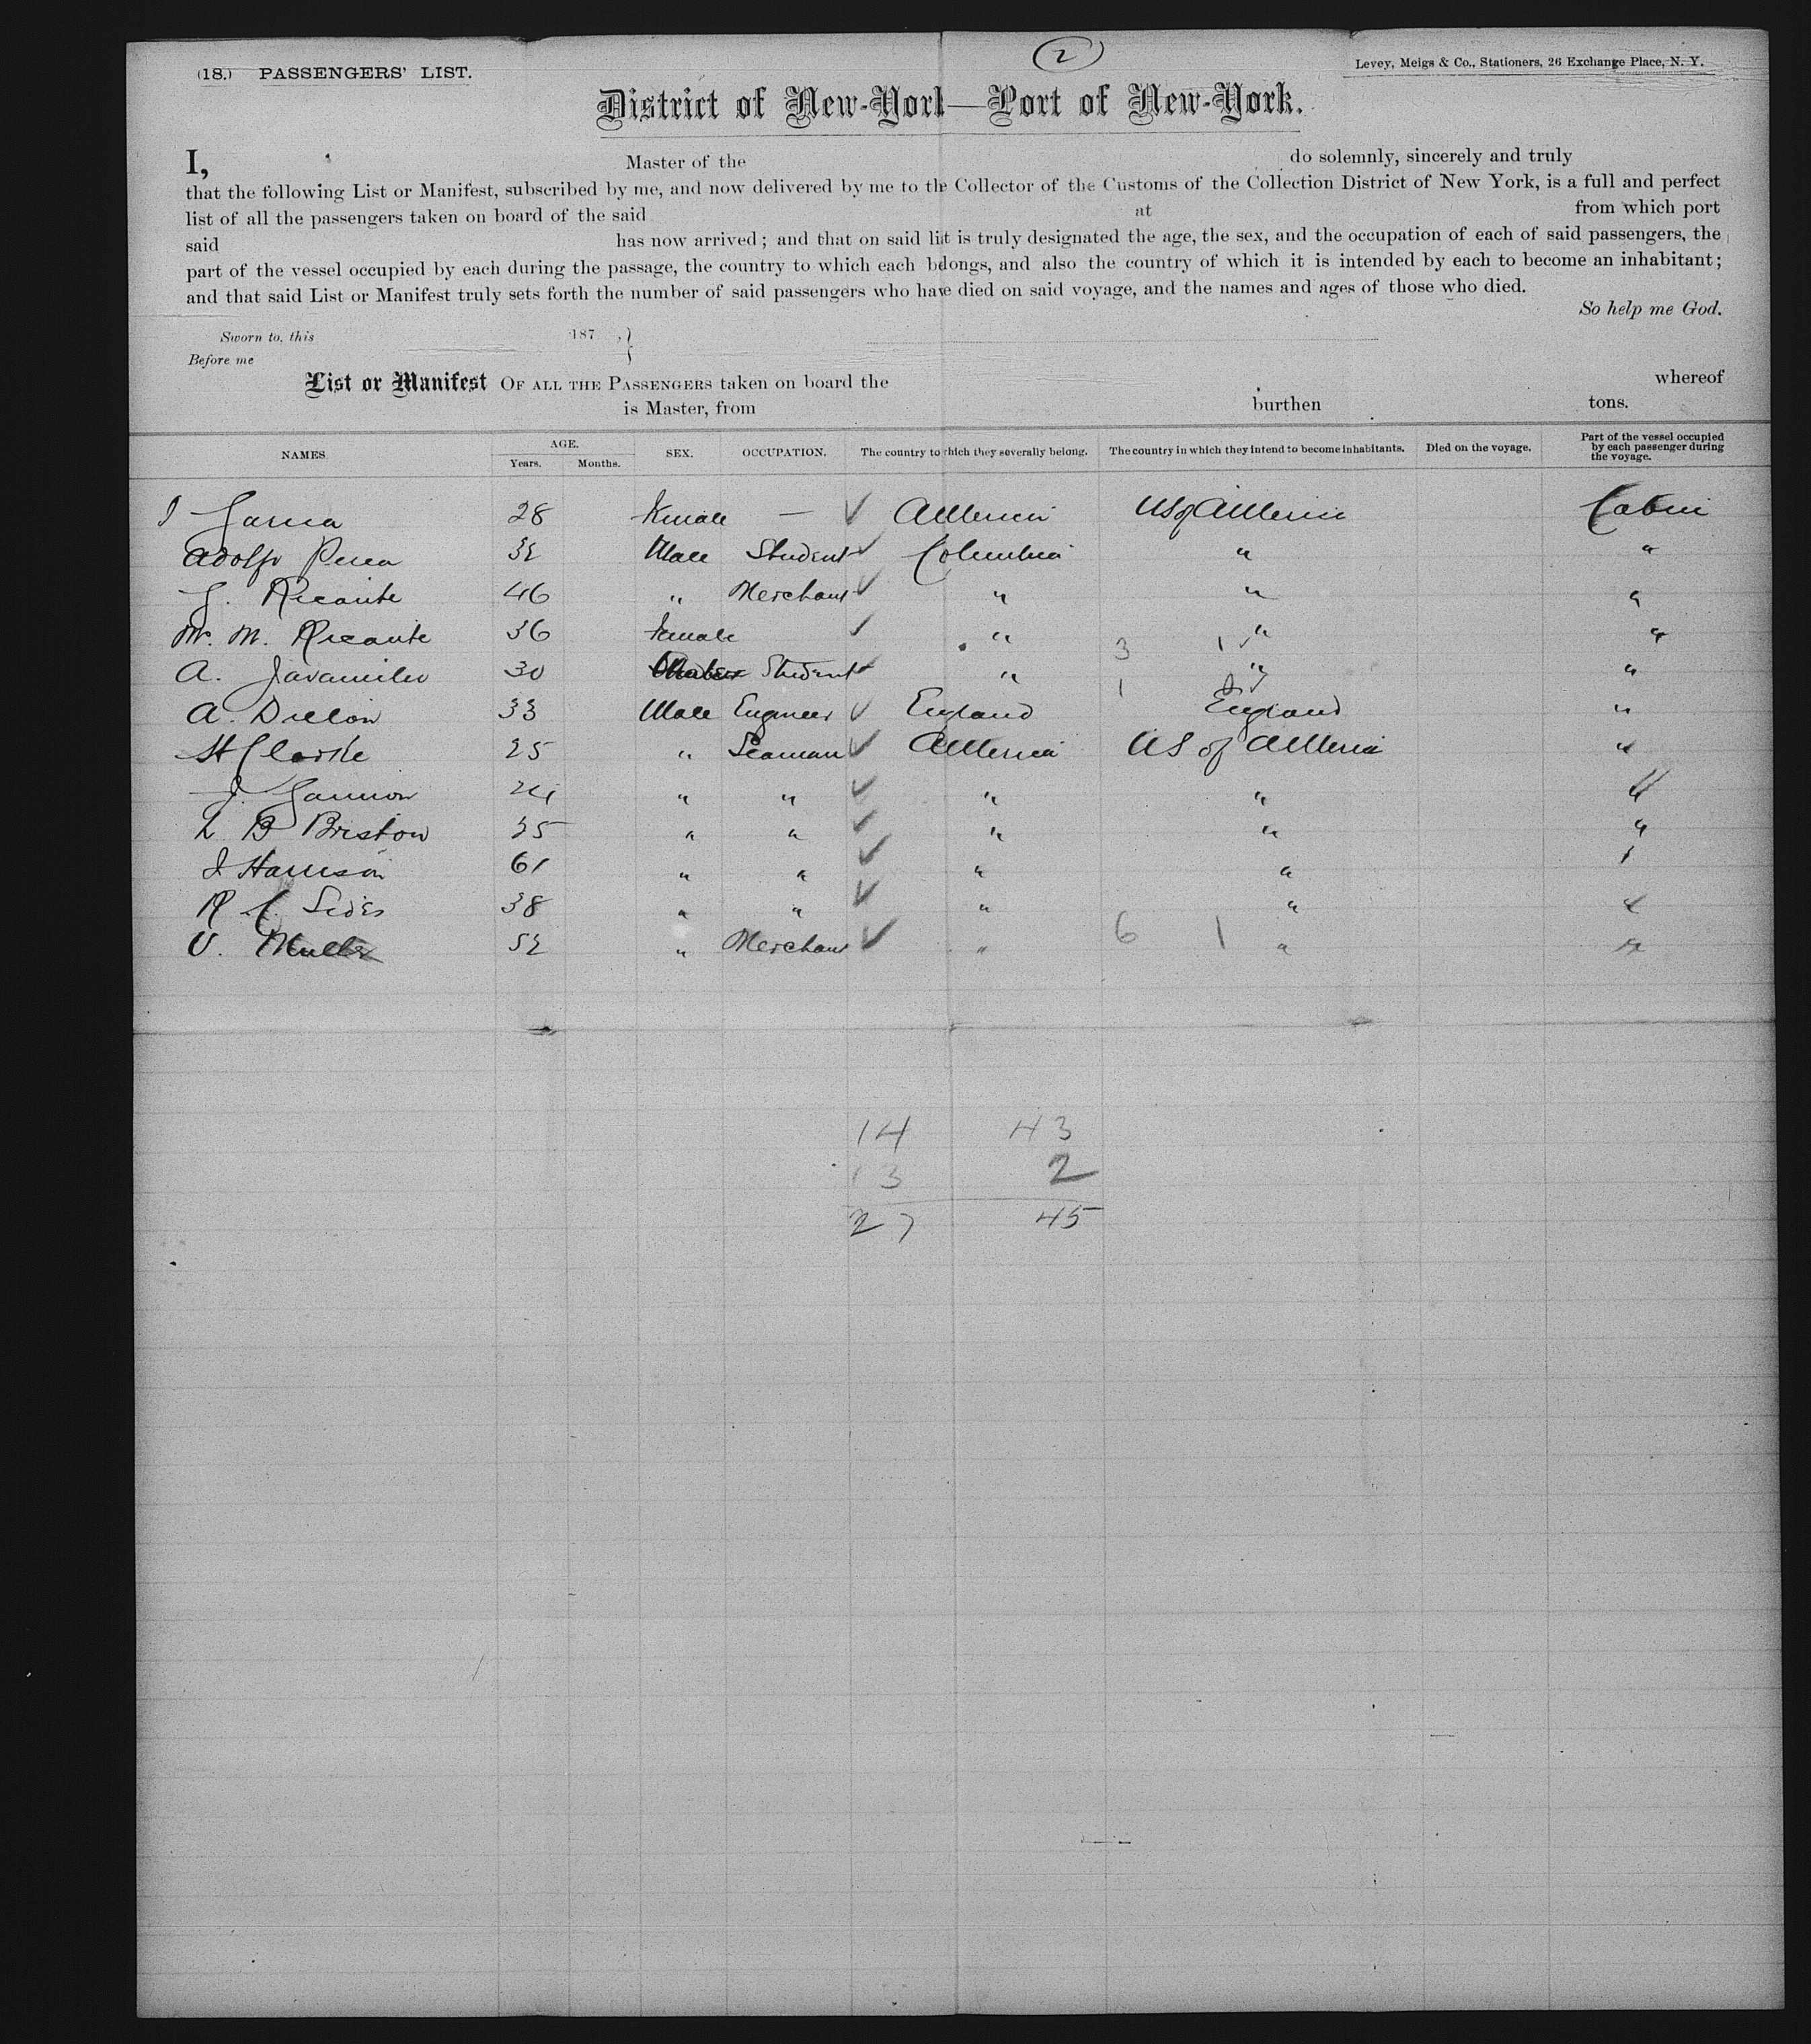 (2)
(18.) PASSENGERS' LIST.
Levey, Meigs & Co., Stationers, 26 Exchange Place, N. Y.
District of New-York—Port of New-York.
I, Master of the do solemnly, sincerely and truly
that the following List or Manifest, subscribed by me, and now delivered by me to the Collector of the Customs of the Collection District of New York, is a full and perfect
list of all the passengers taken on board of the said at from which port
said has now arrived; and that on said list is truly designated the age, the sex, and the occupation of each of said passengers, the
part of the vessel occupied by each during the passage, the country to which each belongs, and also the country of which it is intended by each to become an inhabitant;
and that said List or Manifest truly sets forth the number of said passengers who have died on said voyage, and the names and ages of those who died.
So help me God.
Sworn to, this 187 , }
Before me
List or Manifest OF ALL THE PASSENGERS taken on board the whereof
is Master, from burthen tons.
NAMES. AGE. Years. Months. SEX. OCCUPATION. The country to which they severally belong. The country in which they intend to become inhabitants. Died on the voyage. Part of the vessel occupied by each passenger during the voyage.
28 Female — ✓ America US of America Cabin
Adolfo Perea 32 Male Student ✓ Columbia " "
J. Ricaute 46 " Merchant ✓ " " "
M. Ricaute 36 female ✓ " 3 1 " "
A. Jaramilio 30 Student ✓ " 1 " "
A. Dillon 33 Male Engineer ✓ England England "
St Clarke 25 " Seaman ✓ America US of America "
J. Gannon 24 " " ✓ " " "
L B Bristow 35 " " ✓ " " "
J Harrison 61 " " ✓ " "
R C. Sides 38 " " ✓ " " "
V. Muller 52 " Merchant ✓ " 6 1 " "
14 43
13 2
27 45